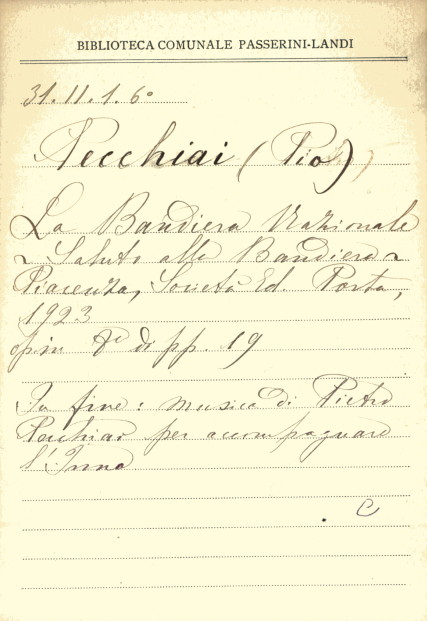 BIBLIOTECA COMUNALE PASSERINI-LANDI
31.11.1.6°
Pecchiai (Pio)
La Bandiera Nazionale
~ Saluto alla Bandiera ~
Piacenza, Società Ed. Porta,
1923
op. in 8° di pp. 19
In fine: musica di Pietro
Pecchiai per accompagnare
l'Inno
C